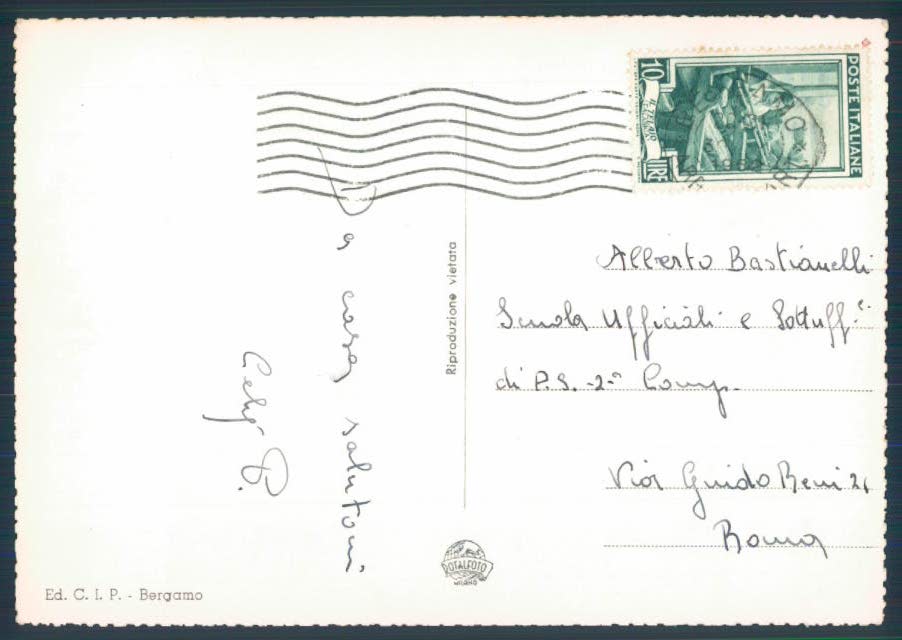 POSTE ITALIANE
10
LIRE
Da casa salutoni
Alberto Bastianelli
Scuola Ufficiali e Sottuff.li
di P.S. -2-a Comp.
Via Guido Reni 21
Roma
Riproduzione vietata
MILANO
Ed. C. I. P. - Bergamo